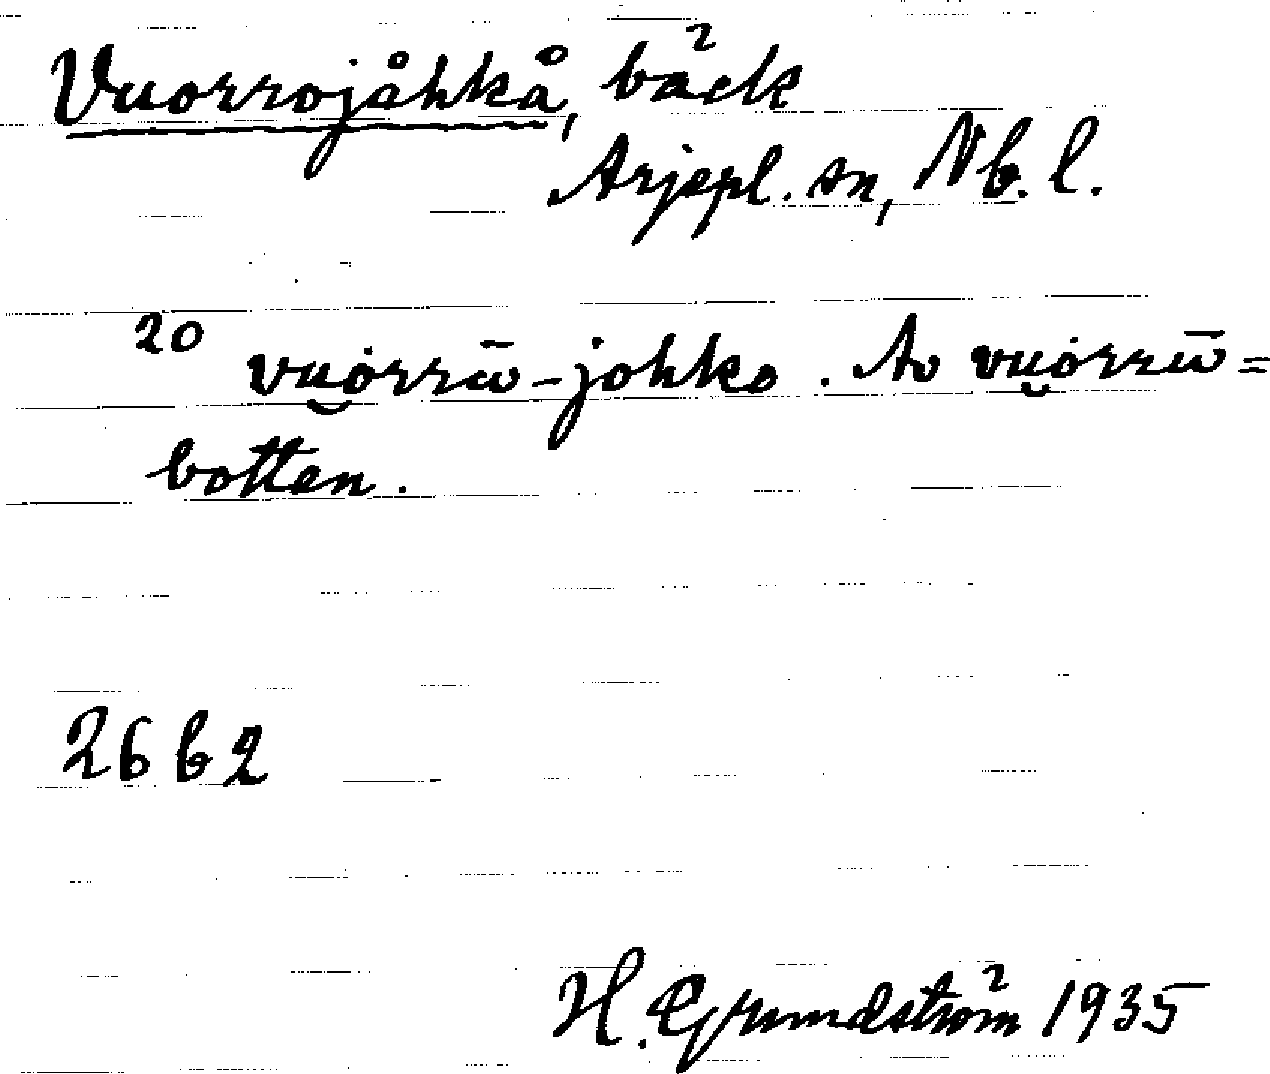 Vuorrojåhkå, bäck
Arjepl. sn, Nb. l.
20 vu̯ȯrrū-johko. Av vu̯ȯrrū=
botten.
26 b 2
H. Grundström 1935